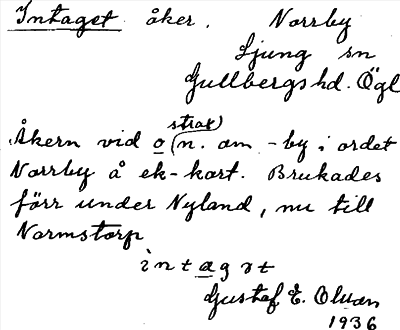 Intaget åker. Norrby
Ljung sn
Gullbergs hd. Ögl
Åkern vid o (strax) n. om -by i ordet
Norrby å ek-kart. Brukades
förr under Nyland, nu till
Normstorp
intagət
Gustaf E. Olson
1936